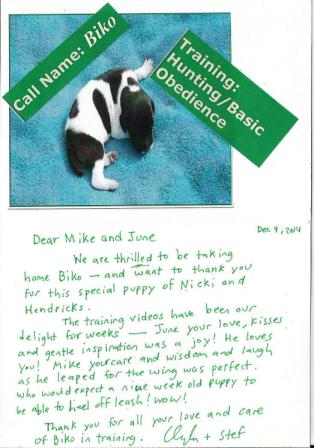 Call Name: Biko
Training:
Hunting/Basic
Obedience
Dec 4, 2014
Dear Mike and June
We are thrilled to be taking
home Biko — and want to thank you
for this special puppy of Nicki and
Hendricks.
The training videos have been our
delight for weeks — June your love, kisses
and gentle inspiration was a joy! He loves
you! Mike your care and wisdom and laugh
as he leaped for the wing was perfect.
who would expect a nine week old puppy to
be able to heel off leash! wow!
Thank you for all your love and care
of Biko in training. + Stef